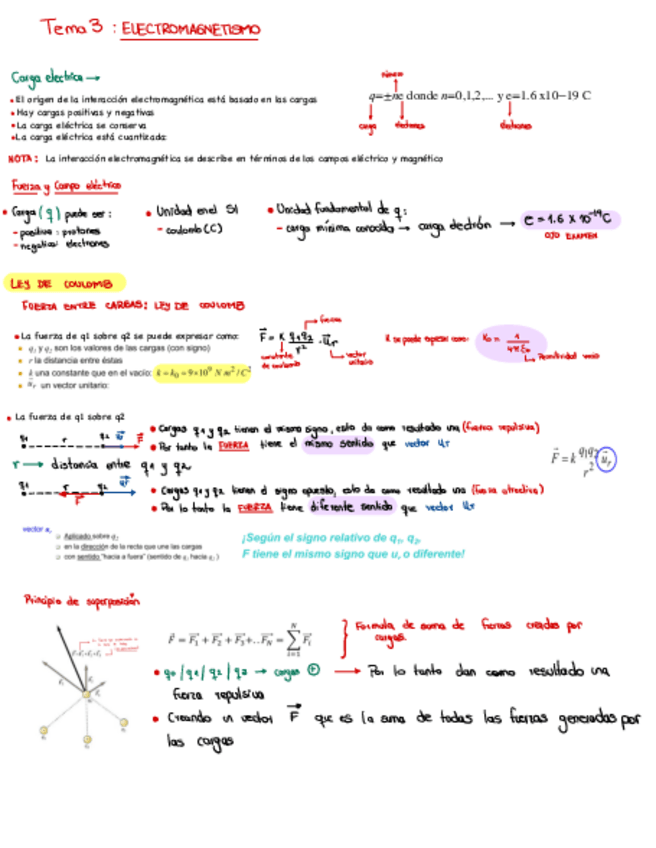 Tema 3 : ELECTROMAGNETISMO
Carga electrica →
• El origen de la interacción electromagnética está basado en las cargas
• Hay cargas positivas y negativas
• La carga eléctrica se conserva
• La carga eléctrica está cuantizada
q=±ne donde n=0,1,2,... y e=1.6 x10−19 C
carga
electrones
electrones
NOTA: La interacción electromagnética se describe en términos de los campos eléctrico y magnético
Fuerza y Campo eléctrico
• Carga (q) puede ser:
- positiva: protones
- negativa: electrones
• Unidad en el SI
- coulomb (C)
• Unidad fundamental de q:
- carga mínima conocida → carga electrón → e = 1.6 x 10⁻¹⁹ C
OJO EXAMEN
LEY DE COULOMB
FUERZA ENTRE CARGAS: LEY DE COULOMB
• La fuerza de q1 sobre q2 se puede expresar como:
q₁ y q₂ son los valores de las cargas (con signo)
r la distancia entre éstas
k una constante que en el vacío: k = k₀ = 9×10⁹ N m²/C²
u⃗r un vector unitario:
fuerza
F⃗ = K q1q2/r² · u⃗r
constante de coulomb
vector unitario
K se puede expresar como: K₀ = 1/4πε₀
Permitividad vacío
• La fuerza de q1 sobre q2
• Cargas q1 y q2 tienen el mismo signo, esto da como resultado una (fuerza repulsiva)
• Por tanto la FUERZA tiene el mismo sentido que vector ur
r → distancia entre q1 y q2
F⃗ = k q₁q₂/r² u⃗r
• Cargas q1 y q2 tienen el signo opuesto, esto da como resultado una (fuerza atractiva)
• Por lo tanto la FUERZA tiene diferente sentido que vector ur
vector uᵣ
Aplicado sobre q₂
en la dirección de la recta que une las cargas
con sentido "hacia a fuera" (sentido de q₁ hacia q₂)
¡Según el signo relativo de q₁, q₂,
F tiene el mismo signo que u, o diferente!
Principio de superposición
F⃗ = F⃗₁ + F⃗₂ + F⃗₃+...F⃗N = ∑ᵢ₌₁ᴺ F⃗ᵢ
Formula de suma de fuerzas creadas por
cargas.
• q0/q1/q2/q3 → cargas ⊕ → Por lo tanto dan como resultado una
fuerza repulsiva
• Creando un vector F⃗ que es la suma de todas las fuerzas generadas por
las cargas